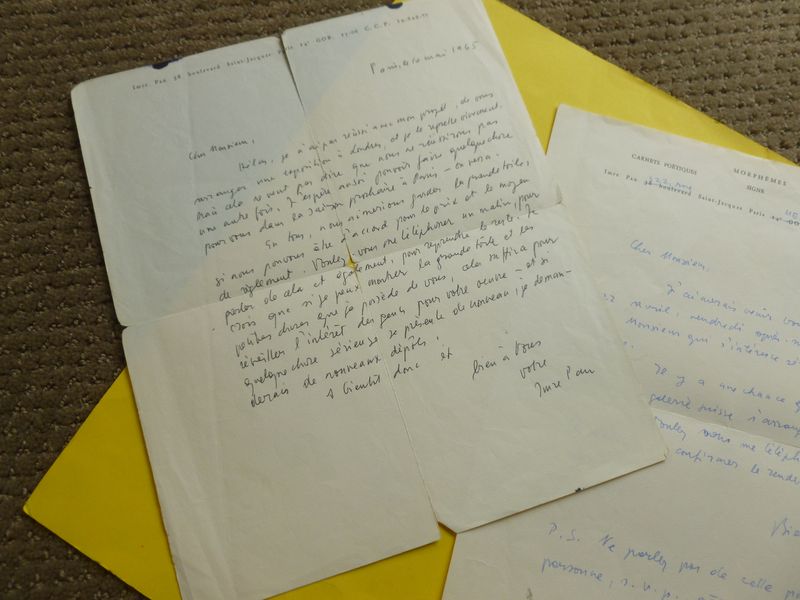 Imre Pan 38 boulevard Saint-Jacques Paris 14e GOB. C.C.P.
Paris, le 10 mai 1965
Cher Monsieur,
Hélas, je n'ai pas réussi avec mon projet, de vous
arranger une exposition à Londres, et je le regrette vivement.
Mais cela ne veut pas dire que nous ne réussirons pas
une autre fois. J'espère aussi pouvoir faire quelque chose
pour vous dans la saison prochaine à Paris – on verra.
En tous, nous aimerions garder la grande toile,
si nous pouvons être d'accord pour le prix et le moyen
de règlement. Voulez-vous me téléphoner un matin, pour
parler de cela et également, pour reprendre le reste. Je
crois que si je peux montrer la grande toile et les
petites choses que je possède de vous, cela suffira pour
réveiller l'intérêt des gens pour votre œuvre – et si
quelque chose sérieuse se présente de nouveau, je deman-
derais de nouveaux dépôts.
A bientôt donc et
bien à vous
votre
Imre Pan
CARNETS POÉTIQUES MORPHÈMES
SIGNE
Imre Pan 38 boulevard Saint-Jacques Paris
Cher Monsieur,
J'aimerais
22 avril, vendredi après-m
Monsieur qui s'intéresse sé
Il y a une chance q
galerie suisse s'arrang
Voulez vous me téléph
confirmer le rende
Bie
P.S. Ne parlez pas de cette
personne, s.v.p.